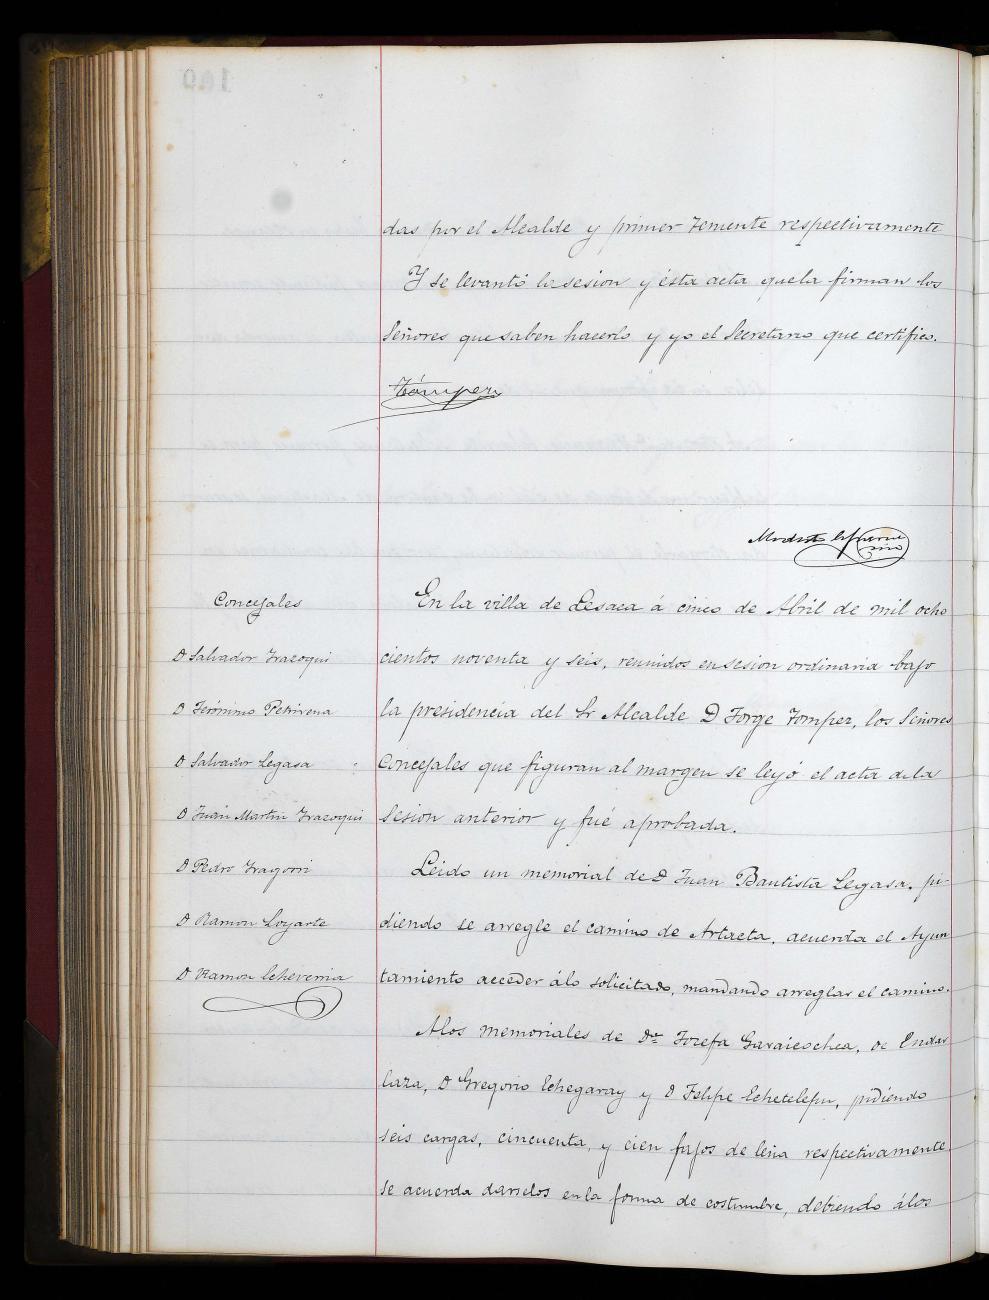 das por el Alcalde y primer Teniente respectivamente
Y se levantó la sesion y ésta acta que la firman los
Señores que saben hacerlo y yo el Secretario que certifico.
Tómpez
Concejales
D Salvador Irazoqui
D Jerónimo Petrirena
D Salvador Legasa
D Juan Martin Irazoqui
D Pedro Iragorri
D Ramon Loyarte
D Ramon Echeverria
En la villa de Lesaca á cinco de Abril de mil ocho
cientos noventa y seis, reunidos en sesion ordinaria bajo
la presidencia del Sr Alcalde D Jorge Tompez, los Señores
Concejales que figuran al margen se leyó el acta de la
Sesion anterior y fué aprobada.
Leido un memorial de D Juan Bautista Legasa, pi-
diendo se arregle el camino de Artaeta, acuerda el Ayun
tamiento acceder á lo solicitado, mandando arreglar el camino.
A los memoriales de Dª Josefa Garaicochea, de Endar
laza, D Gregorio Echegaray y D Felipe Echetelepu, pidiendo
seis cargas, cincuenta, y cien fajos de leña respectivamente
se acuerda darselos en la forma de costumbre, debiendo á los